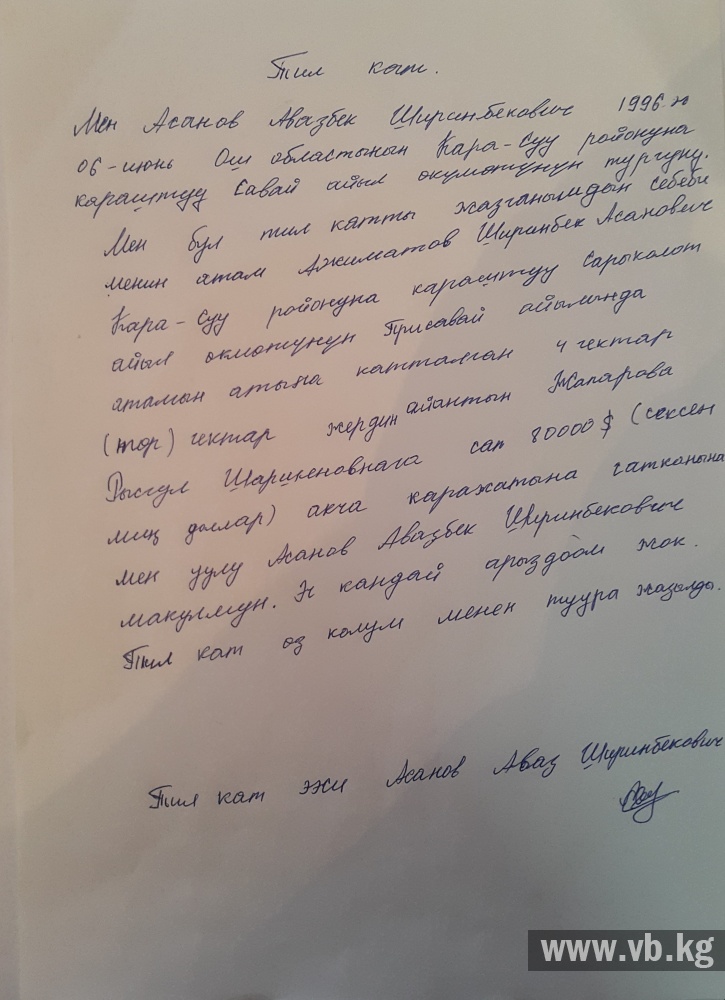 Тил кат.
Мен Асанов Авазбек Ширинбекович 1996.ж
06-июнь Ош областынын Кара-Суу районуна
караштуу Савай айыл окумотунун тургуну.
Мен бул тил катты жазганымдын себеби
менин атам Ажиматов Ширинбек Асанович
Кара-Суу районуна караштуу Сарыколот
айыл окмотунун Присавай айылында
атамын атына катталган 4 гектар
(тор) гектар жердин айантын Жапарова
Рысгул Шаршеновнага сат 80000$ (сексен
миң доллар) акча каражатына сатканына
мен уулу Асанов Авазбек Ширинбекович
макулмун. Эч кандай арыздоом жок.
Тил кат оз колум менен туура жазылды.
Тил кат ээси Асанов Аваз Ширинбекович
www.vb.kg